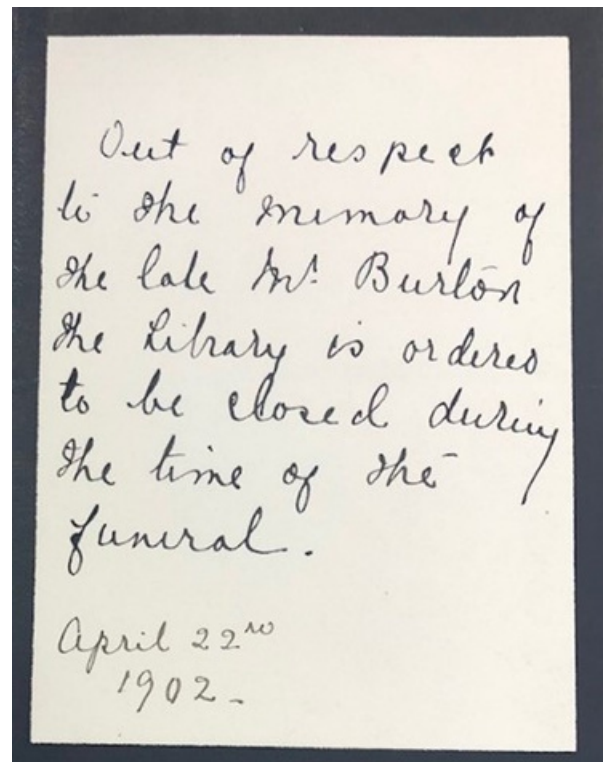 Out of respect
to the memory of
the late Mr. Burton
the Library is ordered
to be closed during
the time of the
funeral.
April 22nd
1902-